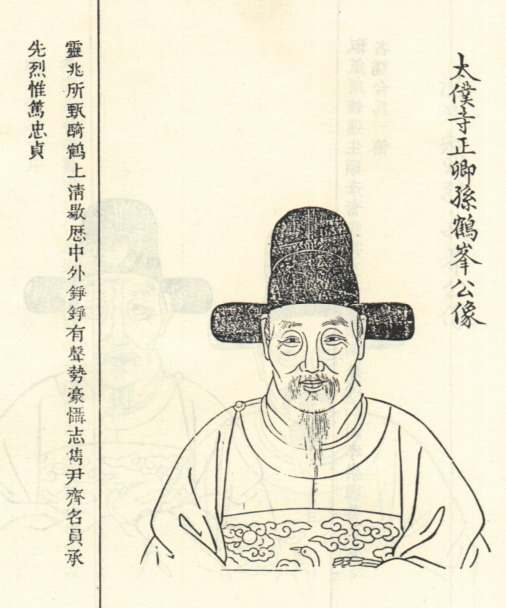 太僕寺正卿孫鶴峯公像
靈兆所甄騎鶴上清敭歷中外錚錚有聲勢豪懾志雋尹齊名員承
先烈惟篤忠貞